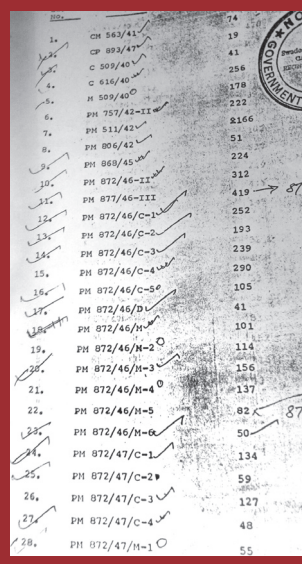 No.
1. CM 563/41 74
2. CP 893/47 19
3. C 509/40 41
4. C 616/40 256
5. M 509/40 178
6. PM 757/42-II 222
7. PM 511/42 2166
8. PM 806/42 51
9. PM 868/45 224
10. PM 872/46-II 312
11. PM 877/46-III 419 → 87
12. PM 872/46/C-1 252
13. PM 872/46/C-2 193
14. PM 872/46/C-3 239
15. PM 872/46/C-4 290
16. PM 872/46/C-5 105
17. PM 872/46/D 41
18. PM 872/46/M 101
19. PM 872/46/M-2 114
20. PM 872/46/M-3 156
21. PM 872/46/M-4 137
22. PM 872/46/M-5 82 87
23. PM 872/46/M-6 50
24. PM 872/47/C-1 134
25. PM 872/47/C-2 59
26. PM 872/47/C-3 127
27. PM 872/47/C-4 48
28. PM 872/47/M-1 55
GOVERNMENT